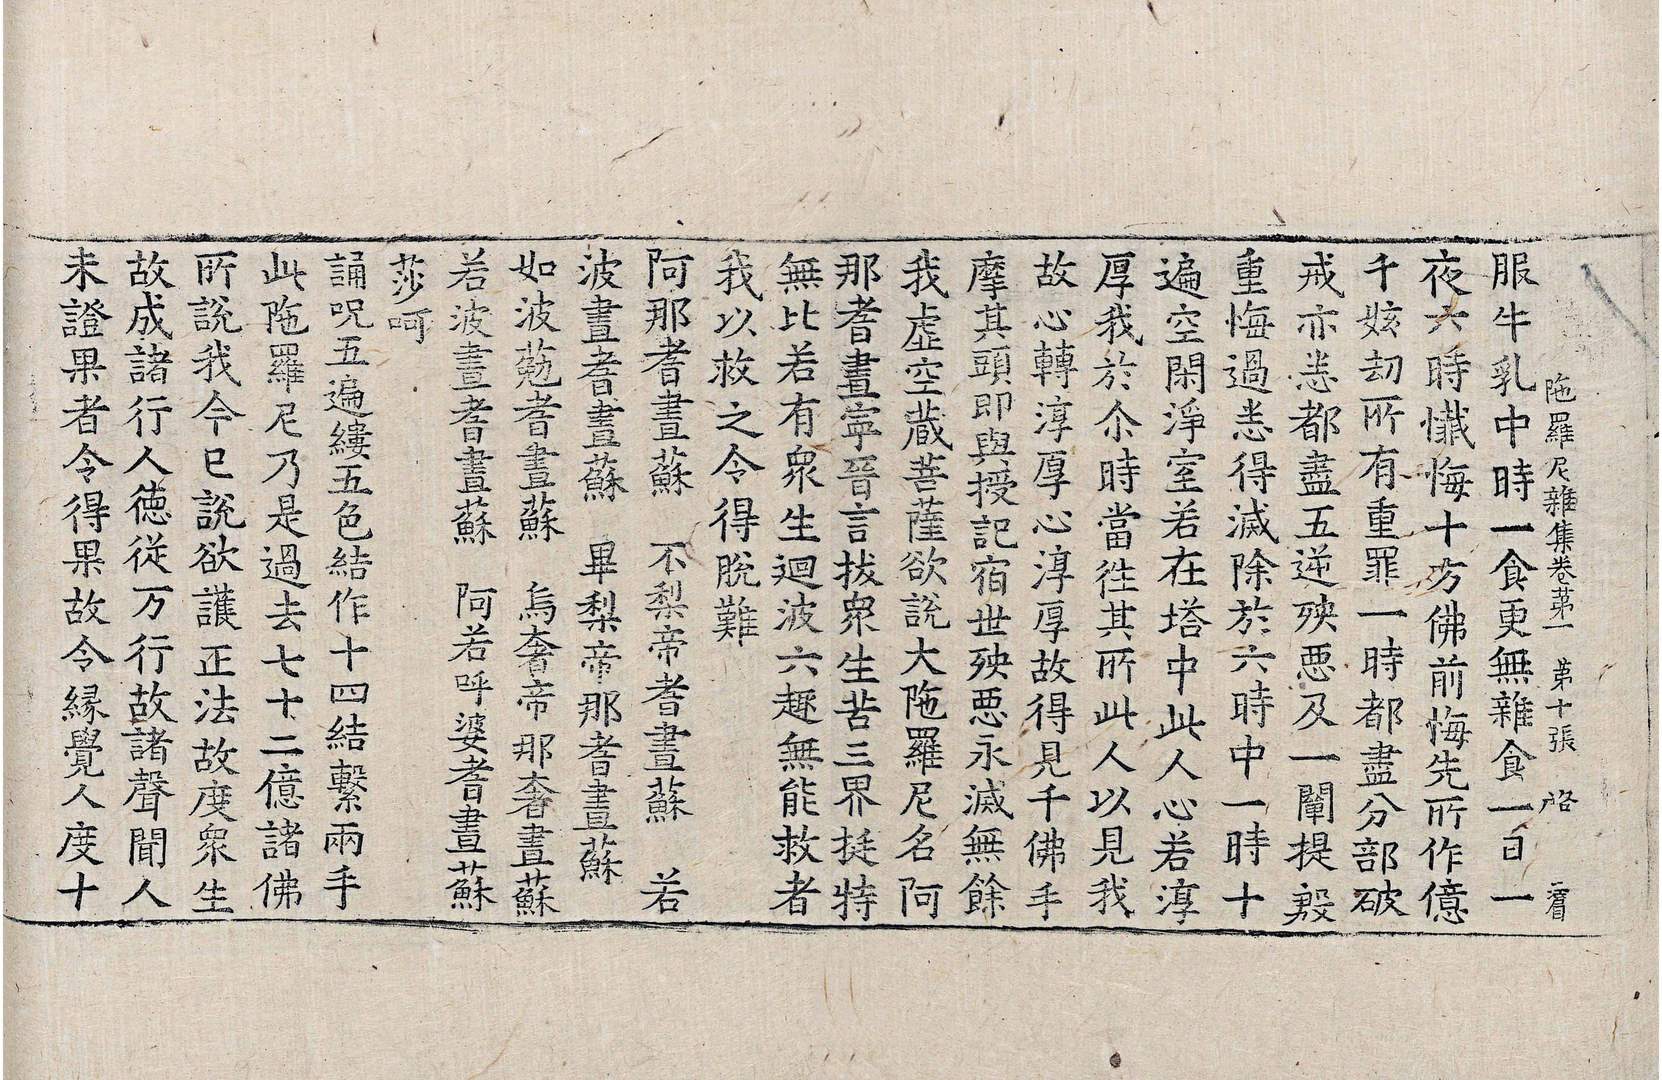 陁羅尼雜集卷苐一 苐十張
服牛乳中時一食更無雜食一百一
夜六時懺悔十方佛前悔先所作億
千姟劫所有重罪一時都盡分部破
戒亦悉都盡五逆殃惡及一闡提毀
重悔過悉得滅除於六時中一時十
遍空閑淨室若在塔中此人心若淳
厚我於尒時當往其所此人以見我
故心轉淳厚心淳厚故得見千佛手
摩其頭即與授記宿世殃惡永滅無餘
我虛空藏菩薩欲說大陁羅尼名阿
那耆晝寧晉言拔衆生苦三界挺特
無比若有衆生迴波六趣無能救者
我以救之令得脫難
阿那耆晝蘇 不梨帝耆晝蘇 若
波晝耆晝蘇 畢梨帝那耆晝蘇
如波耆晝蘇 烏奢帝那奢晝蘇
若波晝耆晝蘇 阿若呼婆耆晝蘇
莎呵
誦呪五遍縷五色結作十四結繫兩手
此陁羅尼乃是過去七十二億諸佛
所說我今已說欲護正法故度衆生
故成諸行人德從万行故諸聲聞人
未證果者令得果故令緣覺人度十